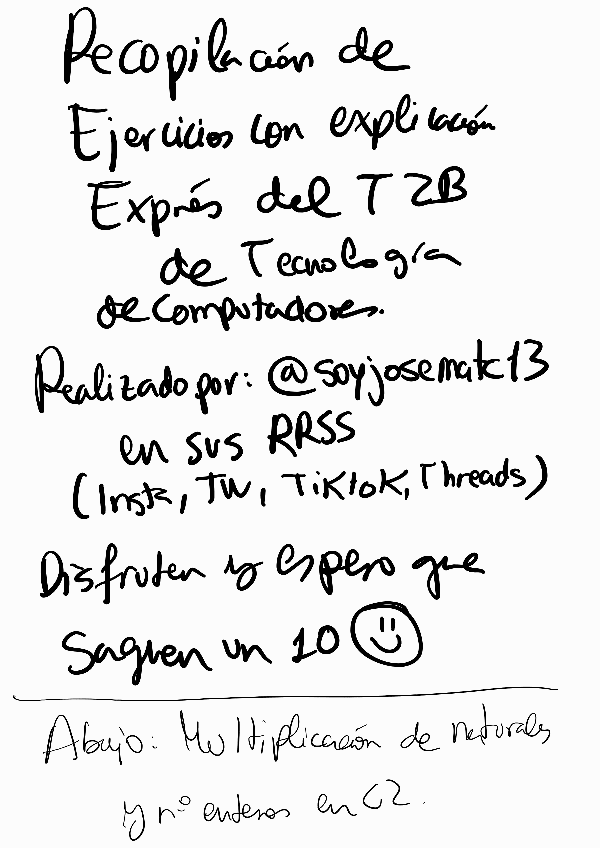 Recopilación de
Ejercicios con explicación
Exprés del T2B
de Tecnología
de Computadores.
Realizado por: @soyjosematc13
en sus RRSS
(Insta, TW, TikTok, Threads)
Disfruten y espero que
saquen un 10
Abajo: Multiplicación de naturales
y nº enteros en C2.